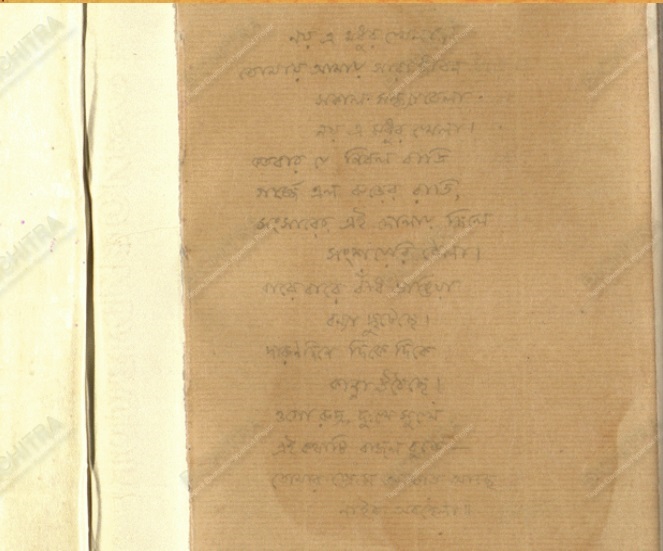 নয় এ মধুর খেলা
তোমায় আমায় সারাজীবন
সকাল সন্ধ্যাবেলা
নয় এ মধুর খেলা।
কতবার যে নিবল বাতি
গর্জে এল ঝড়ের রাতি,
সংসারের এই দোলায় দিলে
সংশয়েরি ঠেলা।
বারে বারে বাঁধ ভাঙিয়া
বন্যা ছুটেছে।
দারুণ দিনে দিকে দিকে
কান্না উঠেছে।
ওগো রুদ্র, দুঃখে সুখে
এই কথাটি বাজল বুকে—
তোমার প্রেমে আঘাত আছে
নাইক অবহেলা॥